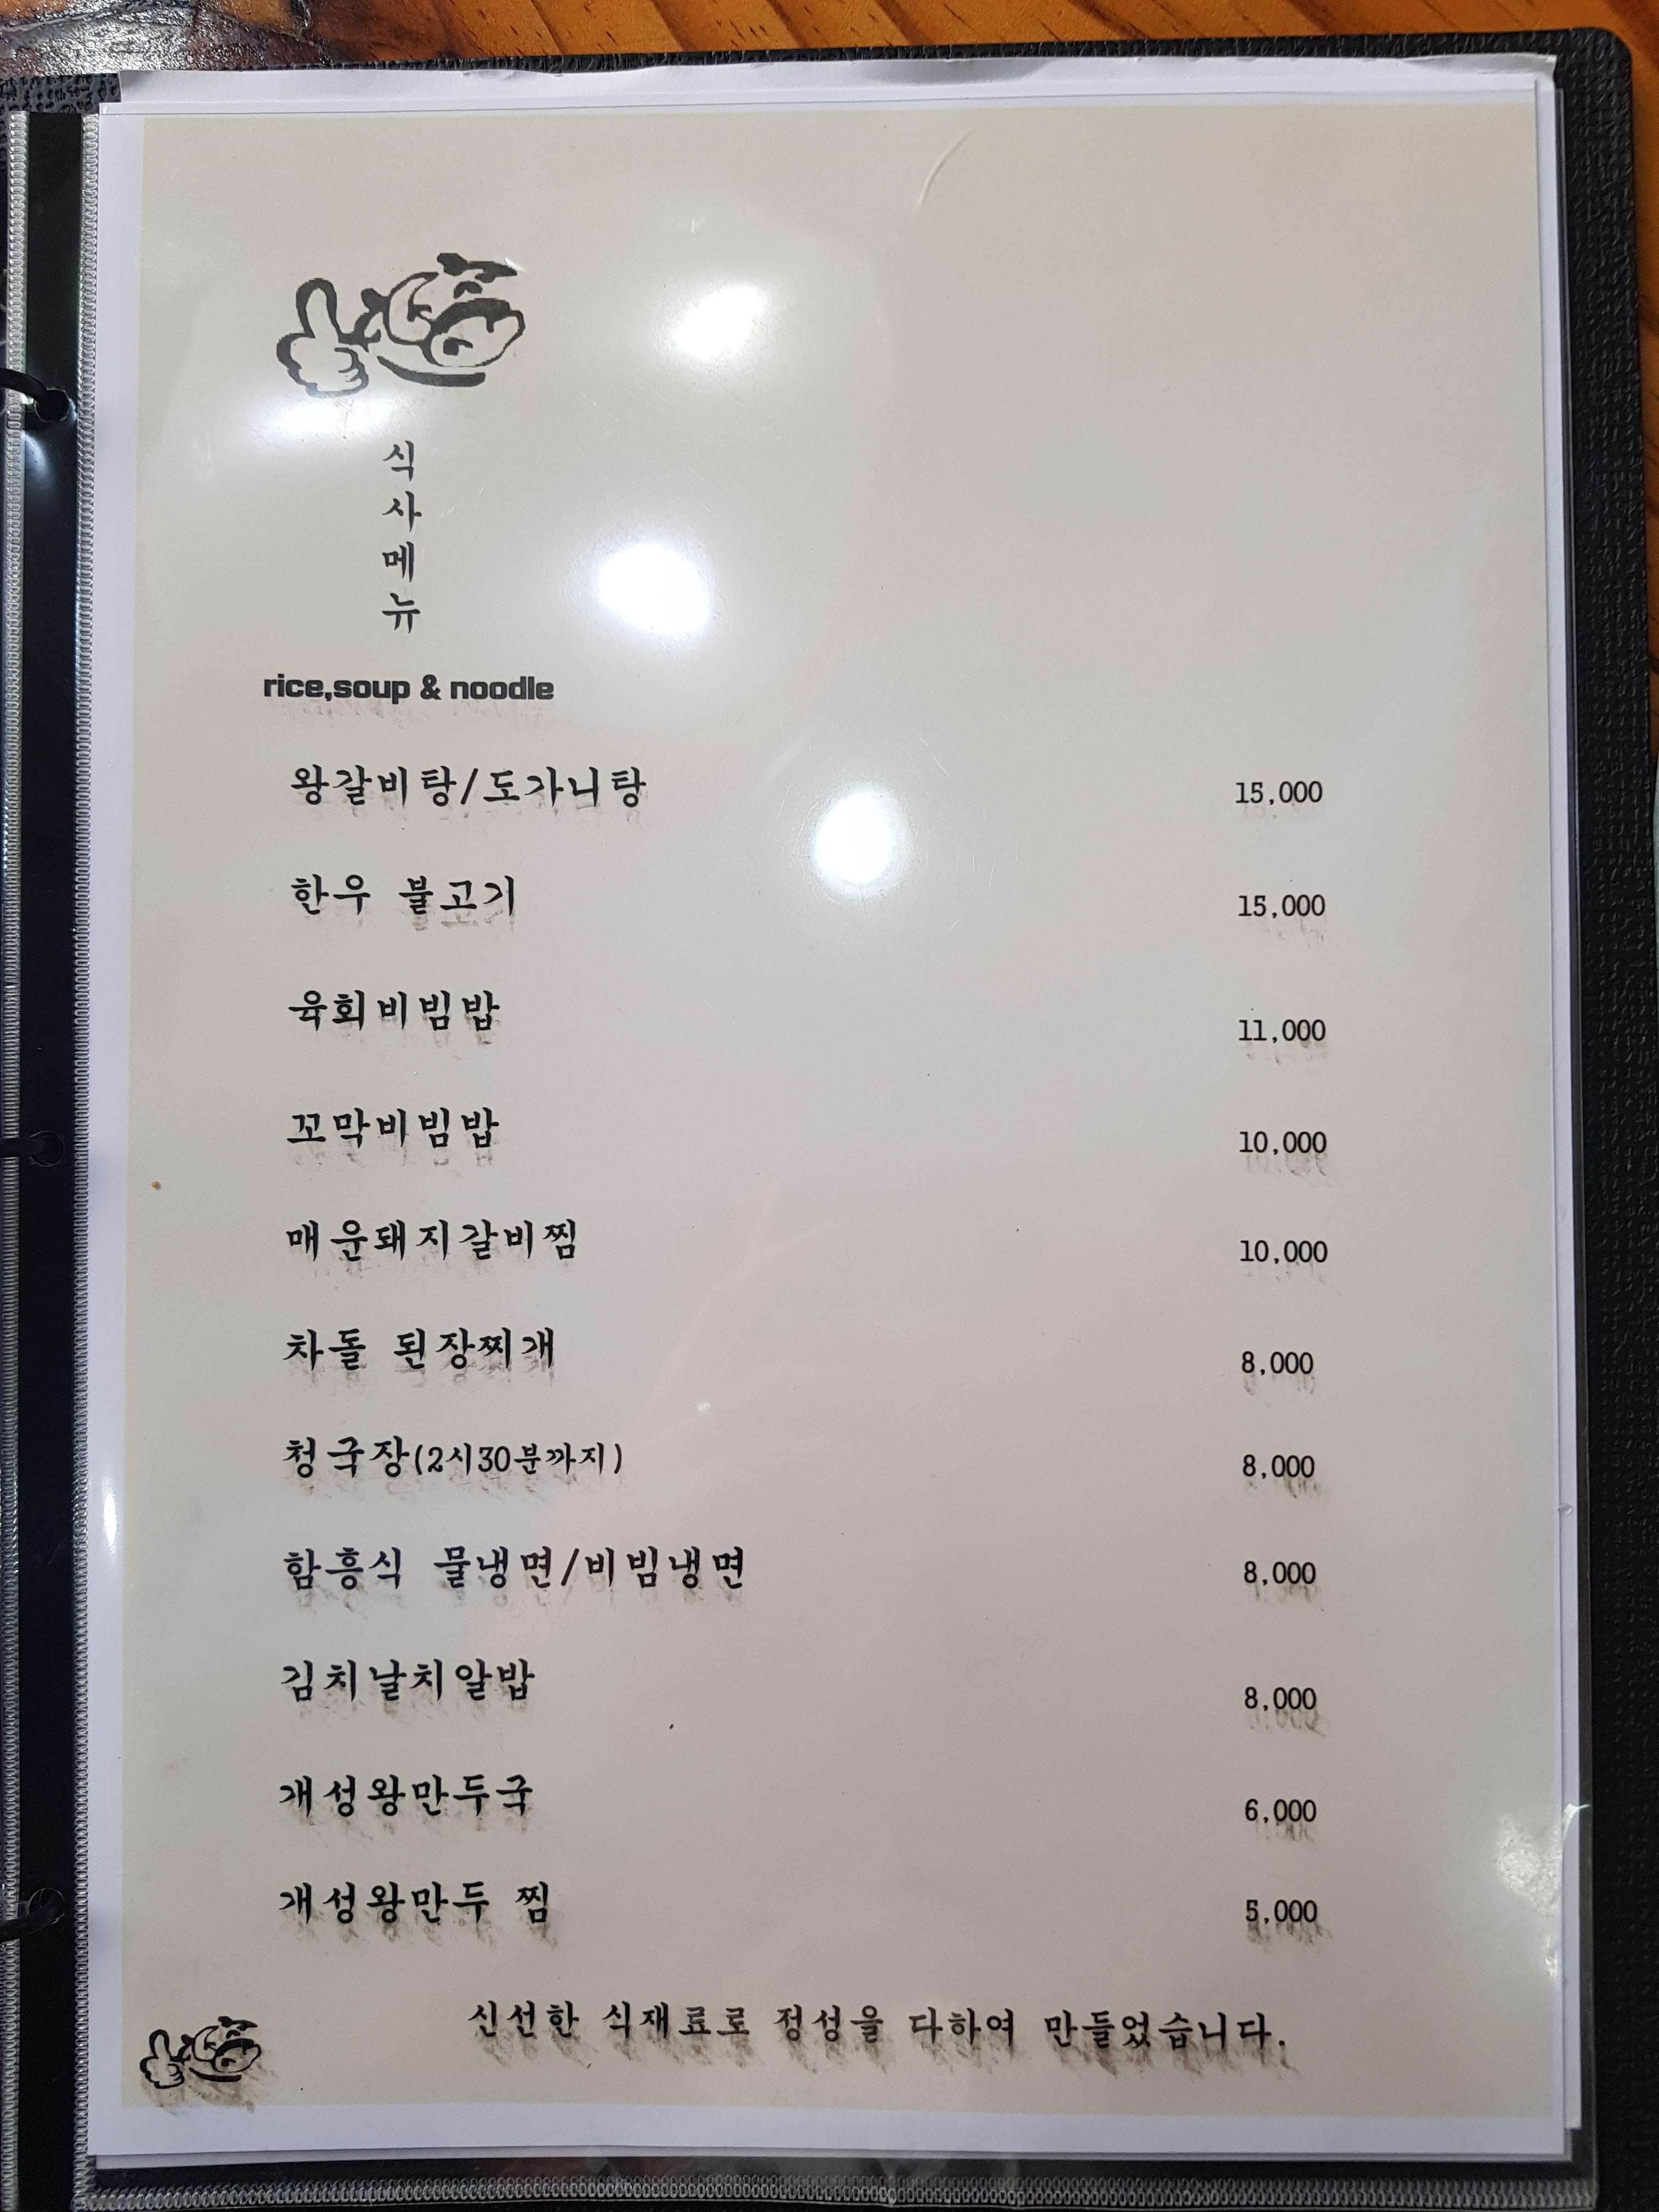 식
사
메
뉴
rice,soup & noodle
왕갈비탕/도가니탕 15,000
한우 불고기 15,000
육회비빔밥 11,000
꼬막비빔밥 10,000
매운돼지갈비찜 10,000
차돌 된장찌개 8,000
청국장(2시30분까지) 8,000
함흥식 물냉면/비빔냉면 8,000
김치날치알밥 8,000
개성왕만두국 6,000
개성왕만두 찜 5,000
신선한 식재료로 정성을 다하여 만들었습니다.